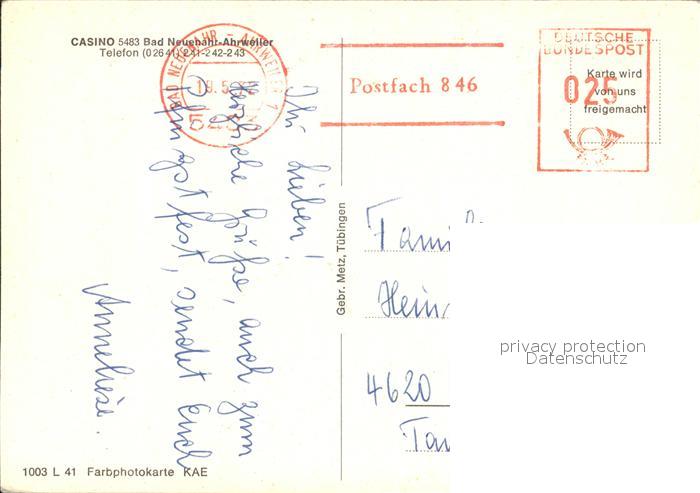 CASINO 5483 Bad Neuenahr-Ahrweiler
Telefon (02641) 241-242-243
BAD NEUENAHR - AHRWEILER 1
19.5.
Postfach 846
DEUTSCHE
BUNDESPOST
025
Karte wird
von uns
freigemacht
Ihr Lieben!
Herzliche Grüße, auch zum
Pfingstfest, sendet Euch
Anneliese.
Gebr. Metz, Tübingen
Fami
Hein
4620
privacy protection
Datenschutz
1003 L 41 Farbphotokarte KAE